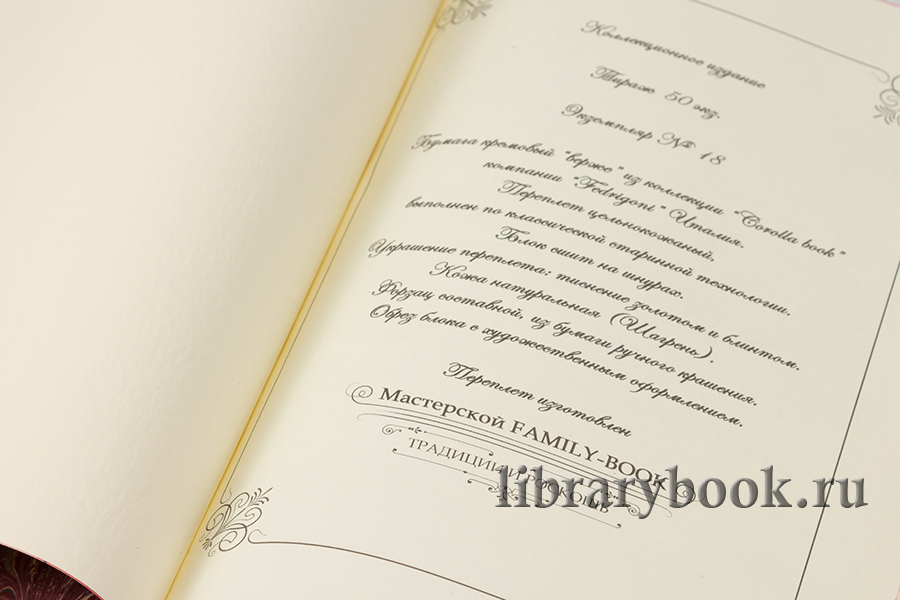 Коллекционное издание
Тираж 50 экз.
Экземпляр № 18
Бумага кремовый "верже" из коллекции "Corolla book"
компании "Fedrigoni" Италия.
Переплет цельнокожаный,
выполнен по классической старинной технологии.
Блок сшит на шнурах.
Украшение переплета: тиснение золотом и блинтом.
Кожа натуральная (Шагрень).
Форзац составной, из бумаги ручного крашения.
Обрез блока с художественным оформлением.
Переплет изготовлен
Мастерской FAMILY-BOOK
ТРАДИЦИИ И РОСКОШЬ
librarybook.ru